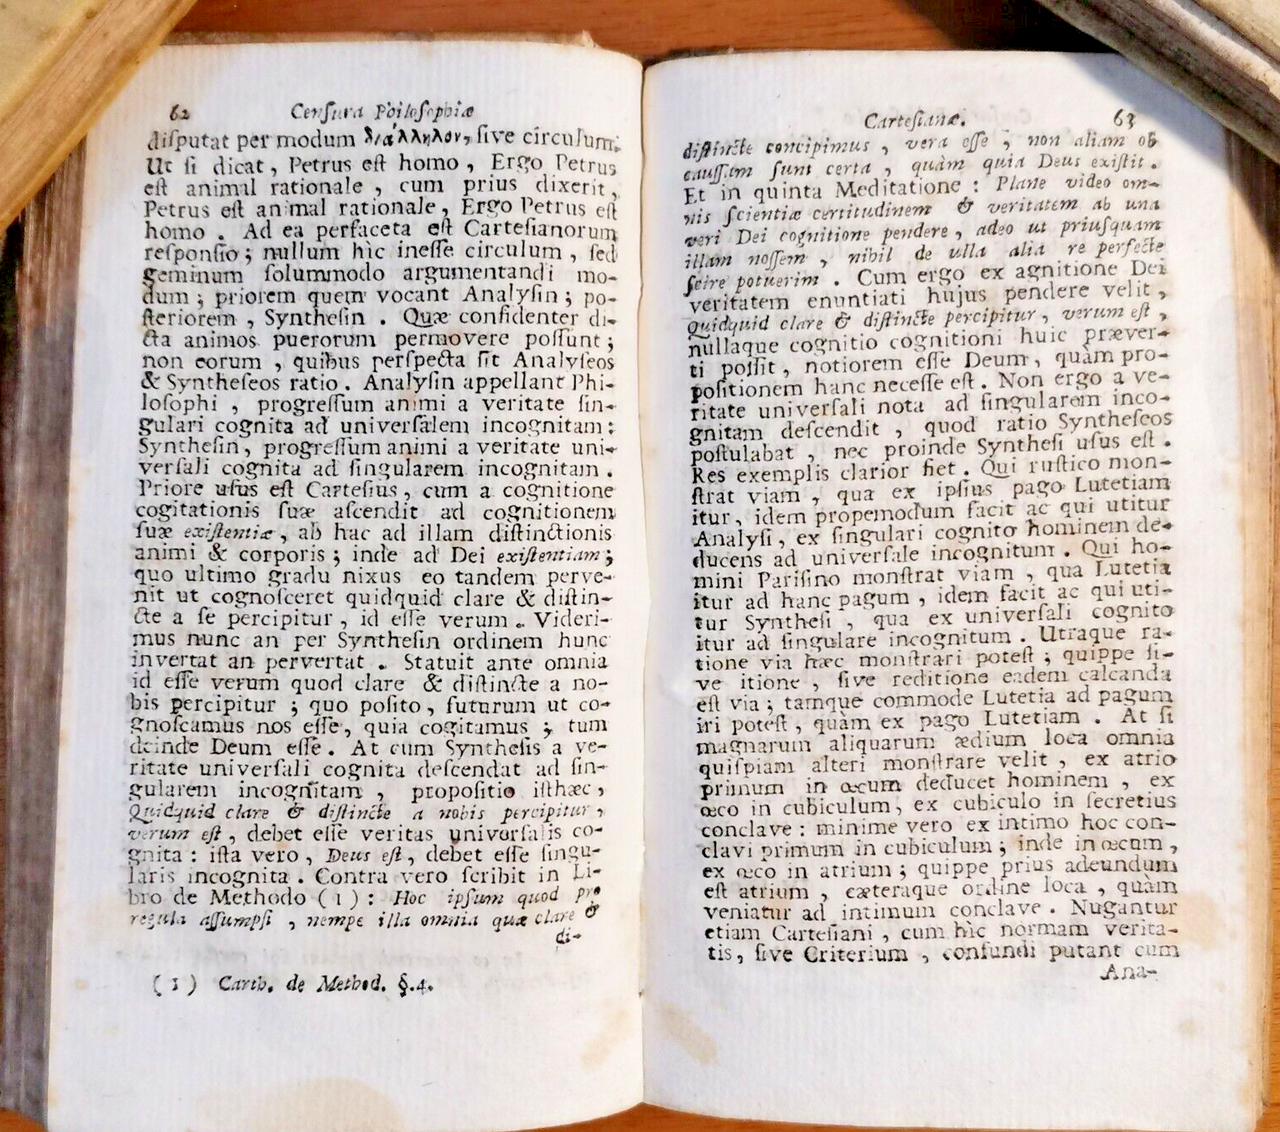 62 Censura Philosophiæ
disputat per modum διάλληλον, sive circulum.
Ut si dicat, Petrus est homo, Ergo Petrus
est animal rationale, cum prius dixerit,
Petrus est animal rationale, Ergo Petrus est
homo. Ad ea perfaceta est Cartesianorum
responsio; nullum hìc inesse circulum, sed
geminum solummodo argumentandi mo-
dum; priorem quem vocant Analysin; po-
steriorem, Synthesin. Quæ confidenter di-
cta animos puerorum permovere possunt;
non eorum, quibus perspecta sit Analyseos
& Syntheseos ratio. Analysin appellant Phi-
losophi, progressum animi a veritate sin-
gulari cognita ad universalem incognitam:
Synthesin, progressum animi a veritate uni-
versali cognita ad singularem incognitam.
Priore usus est Cartesius, cum a cognitione
cogitationis suæ ascendit ad cognitionem
suæ existentiæ, ab hac ad illam distinctionis
animi & corporis; inde ad Dei existentiam;
quo ultimo gradu nixus eo tandem perve-
nit ut cognosceret quidquid clare & distin-
cte a se percipitur, id esse verum. Videri-
mus nunc an per Synthesin ordinem hunc
invertat an pervertat. Statuit ante omnia
id esse verum quod clare & distincte a no-
bis percipitur; quo posito, futurum ut co-
gnoscamus nos esse, quia cogitamus; tum
deinde Deum esse. At cum Synthesis a ve-
ritate universali cognita descendat ad sin-
gularem incognitam, propositio isthæc,
Quidquid clare & distincte a nobis percipitur,
verum est, debet esse veritas universalis co-
gnita: ista vero, Deus est, debet esse singu-
laris incognita. Contra vero scribit in Li-
bro de Methodo (1): Hoc ipsum quod pro
regula assumpsi, nempe illa omnia quæ clare &
di-
(1) Carth. de Method. §.4.
Cartesianæ. 63
distincte concipimus, vera esse; non aliam ob
caussam sunt certa, quàm quia Deus existit.
Et in quinta Meditatione: Plane video om-
nis scientiæ certitudinem & veritatem ab una
veri Dei cognitione pendere, adeo ut priusquam
illam nossem, nihil de ulla alia re perfecte
scire potuerim. Cum ergo ex agnitione Dei
veritatem enuntiati hujus pendere velit,
Quidquid clare & distincte percipitur, verum est,
nullaque cognitio cognitioni huic præver-
ti possit, notiorem esse Deum, quàm pro-
positionem hanc necesse est. Non ergo a ve-
ritate universali nota ad singularem inco-
gnitam descendit, quod ratio Syntheseos
postulabat, nec proinde Synthesi usus est.
Res exemplis clarior fiet. Qui rustico mon-
strat viam, qua ex ipsius pago Lutetiam
itur, idem propemodum facit ac qui utitur
Analysi, ex singulari cognito hominem de-
ducens ad universale incognitum. Qui ho-
mini Parisino monstrat viam, qua Lutetia
itur ad hanc pagum, idem facit ac qui uti-
tur Synthesi, qua ex universali cognito
itur ad singulare incognitum. Utraque ra-
tione via hæc monstrari potest; quippe si-
ve itione, sive reditione eadem calcanda
est via; tamque commode Lutetia ad pagum
iri potest, quàm ex pago Lutetiam. At si
magnarum aliquarum ædium loca omnia
quispiam alteri monstrare velit, ex atrio
primum in œcum deducet hominem, ex
œco in cubiculum, ex cubiculo in secretius
conclave: minime vero ex intimo hoc con-
clavi primum in cubiculum; inde in œcum,
ex œco in atrium; quippe prius adeundum
est atrium, cæteraque ordine loca, quàm
veniatur ad intimum conclave. Nugantur
etiam Cartesiani, cum hìc normam verita-
tis, sive Criterium, confundi putant cum
Ana-